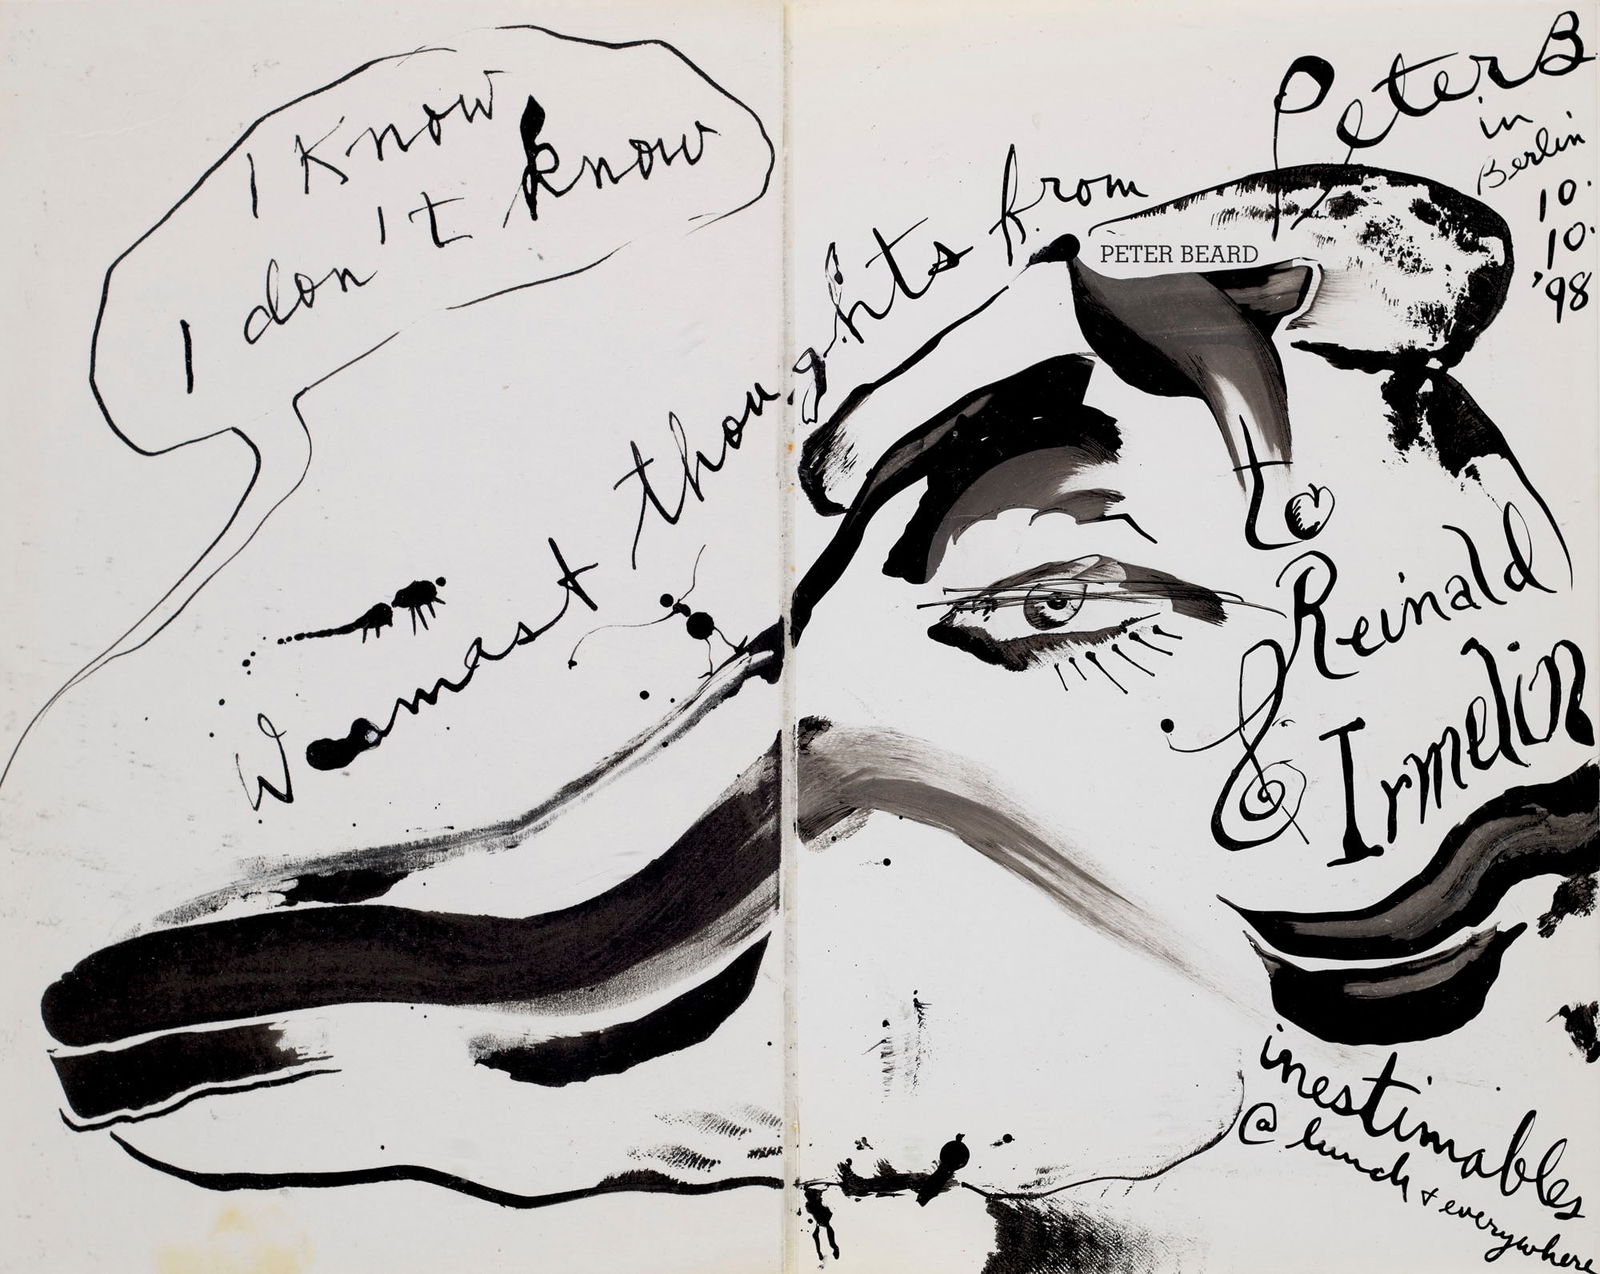 I know
I don't know
Warmest thoughts from Peter B
in
Berlin
10.
10.
'98
PETER BEARD
to
Reinald
&
Irmelin
inestimables
@ lunch + everywhere